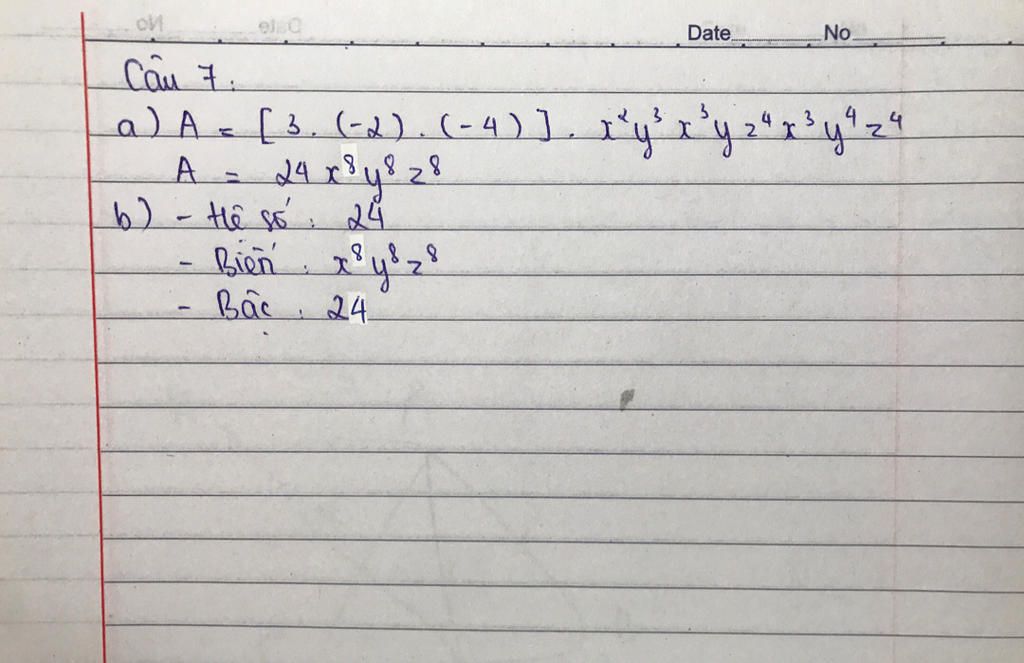 Date No
Câu 7:
a) A = [3. (-2) . (-4)] . x²y³x³yz⁴x³y⁴z⁴
A = 24 x⁸y⁸z⁸
b) - Hệ số : 24
- Biến : x⁸y⁸z⁸
- Bậc : 24